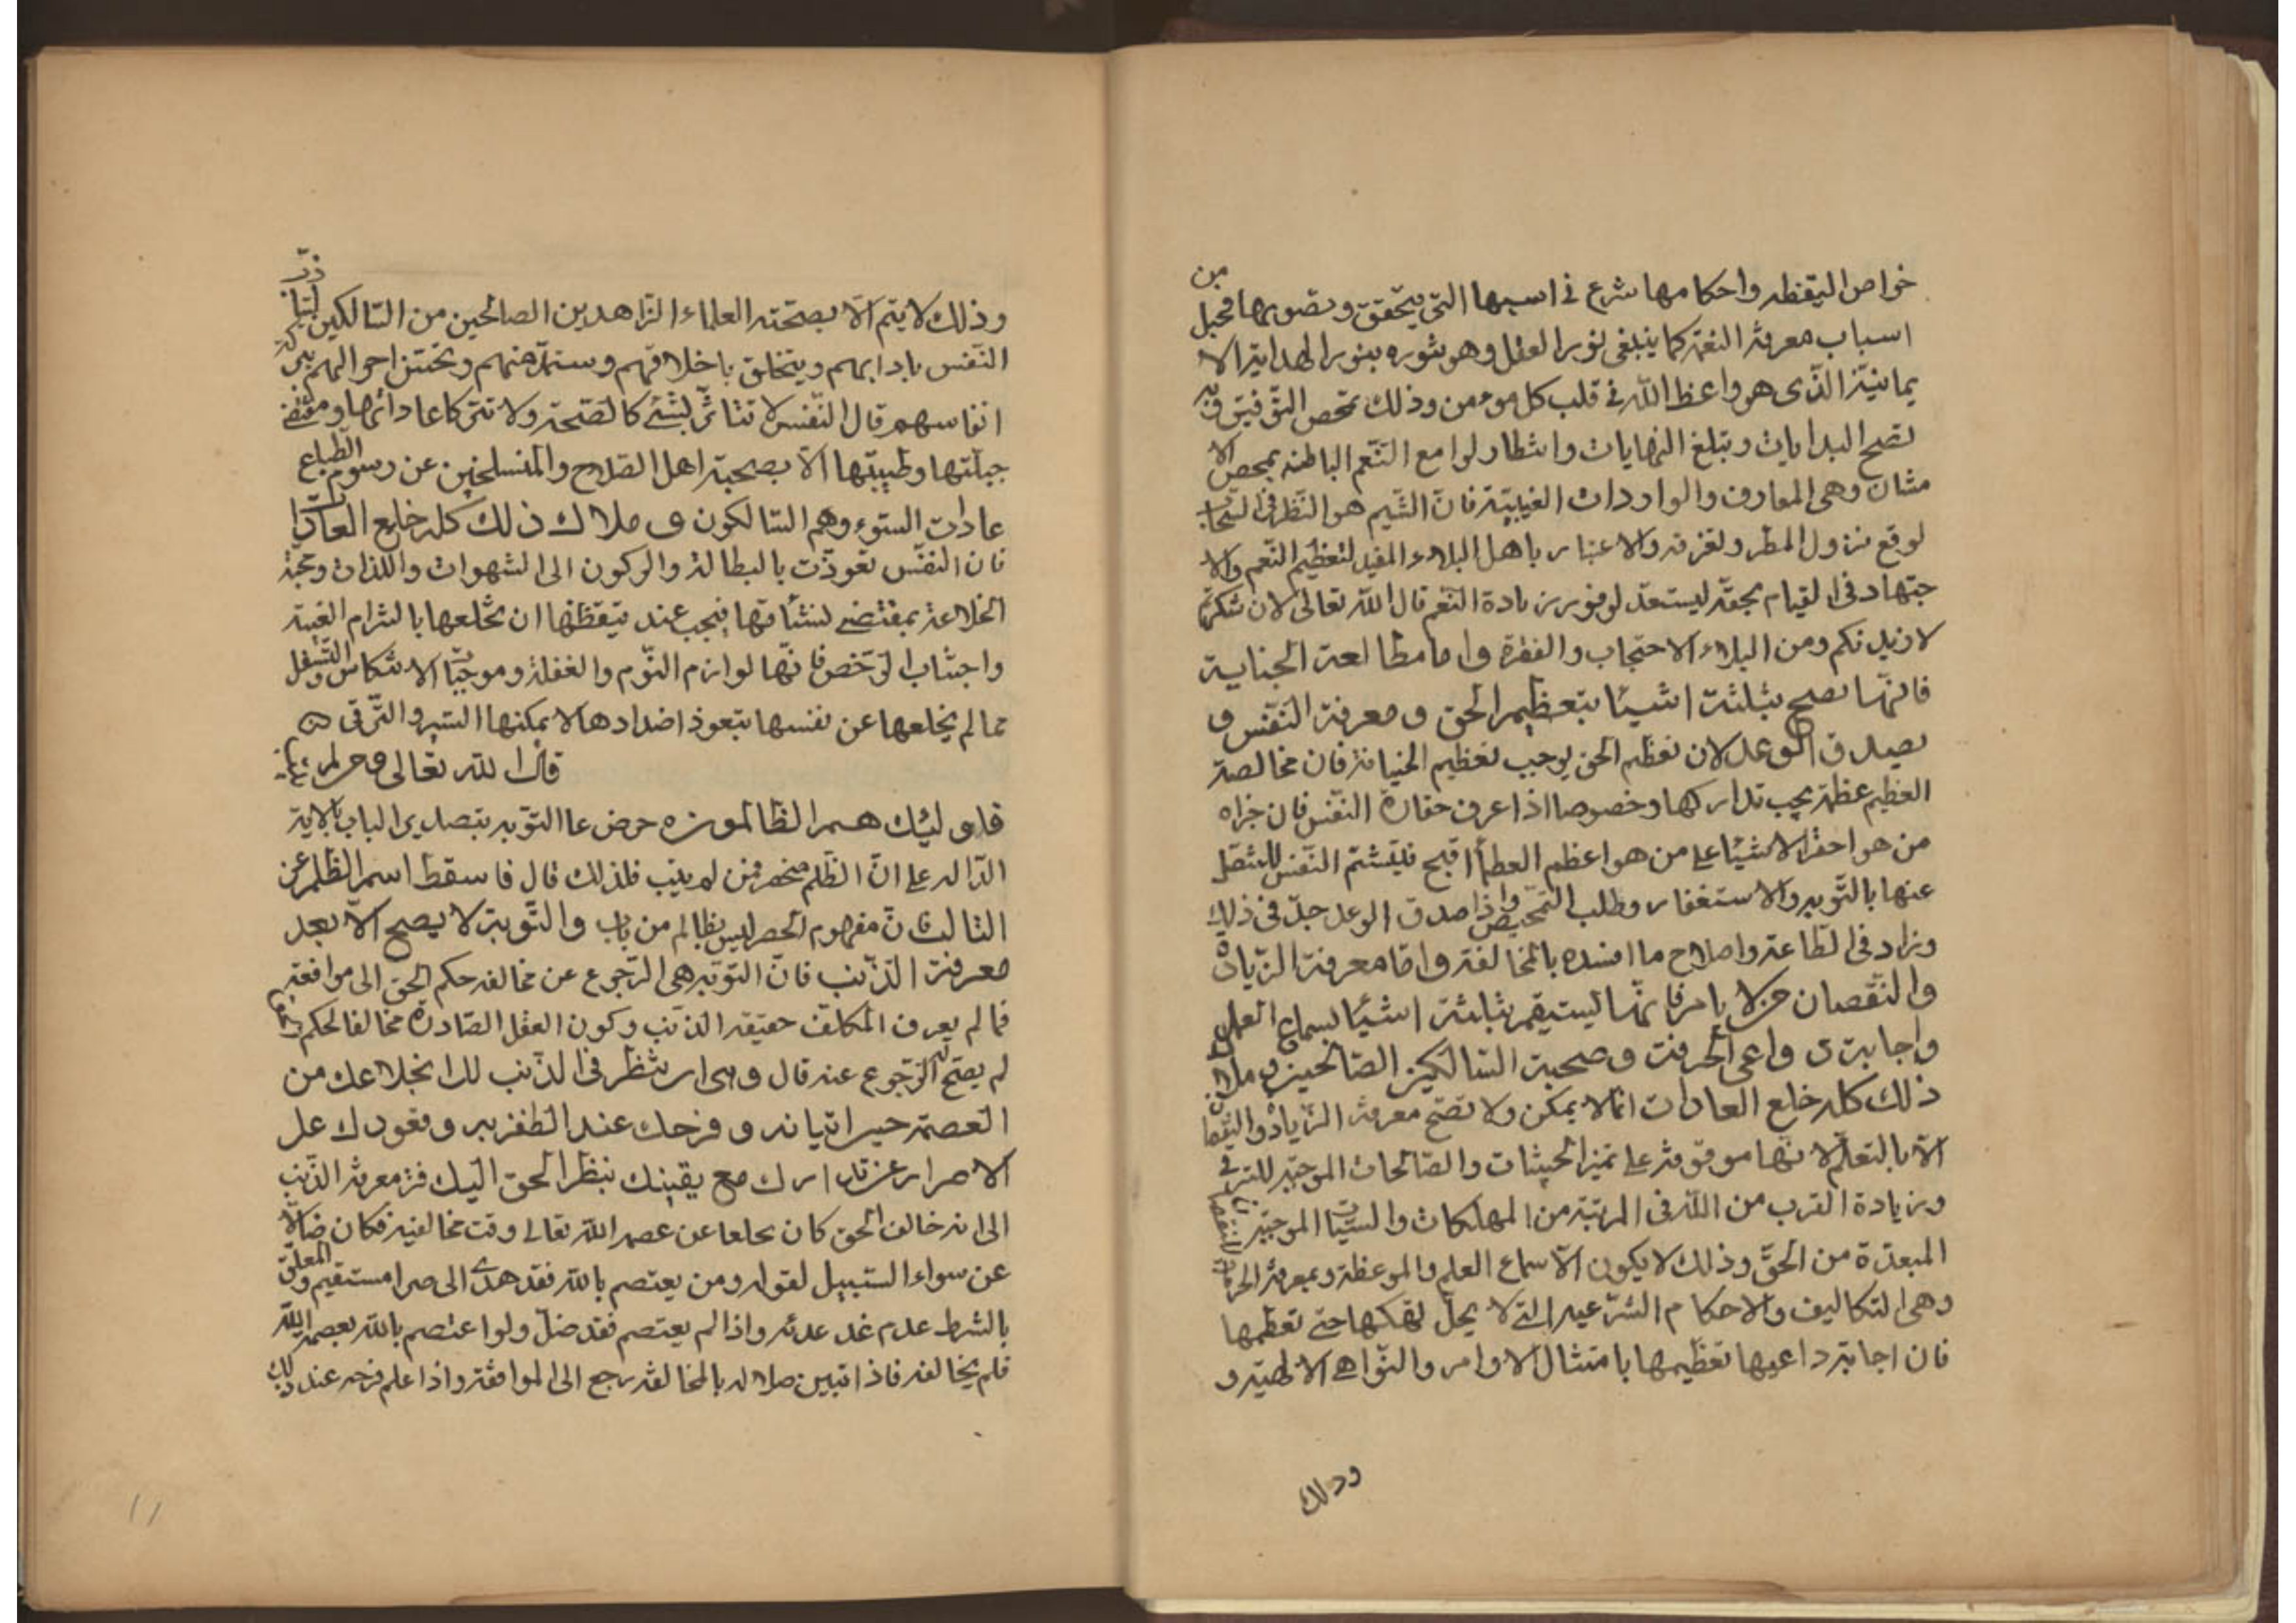 خواص اليقظه واحكامها شرع فى اسبها التى يتحقق وتصو بها فجبل من
اسباب معرفة النعمة كما ينبغى نور العقل وهو بثوره بنور الهداية الا
يمانيّة الذّى هو واعظ اللّه فى قلب كل مومن وذلك بمحض التّوفيق وبه
تصح البدايات وتبلغ النهايات وانتظار لوامع النّعم الباطنه بمحض الا
متنان وهى المعارف والواردات الغيبيّة فانّ الشّيم هو النّظر فى السّحاب
لوقع نزول المطر ولغزفه والاعتبار باهل البلاء المفيد لتعظيم النّعم والا
جتهاد فى القيام بحقّه ليستعدّ لوفور زيادة النّعم قال اللّه تعالى لان شكرتم
لازيدنكم ومن البلاء الاحتجاب والفترة واما مطالعة الجناية
فانّها تصح بثلثة اشيئا بتعظيم الحق و معرفة النّفس و
تصديق الوعد لان تعظم الحق يوجب تعظيم الخيانة فان مخالصة
العظيم عظمة يجب تداركها وخصوصا اذا عرف حقارة النّفس فان جزاه
من هو احقر الاشيئا على من هو اعظم العظما اقبح فليشتمّ النّفس للتنصّل
عنها بالتّوبه والاستغفار وطلب التّمحيص واذا صدق الوعد جدّ فى ذلك
وزاد فى الطّاعة واصلاح ما افسده بالمخالفة وامّا معرفة الزّيادة
والنّقصان من الايام فانّها تستيقم بثلثة اشيئا بسماع العلم
واجابة دواعى الحرمة وصحبة السّالكين الصّالحين وملاك
ذلك كله خلع العادات انّما لا يمكن ولا تصّح معرفة الزّيادة والنّقصا
الّا بالتعلّم لانّها موقوفة على تميز الحيثات والصّالحات الموجبّه للترقى
وزيادة القرب من اللّه فى المرتبة من المهلكات والسّيّئات الموجبّه للنقصان
المبعدّة من الحقّ وذلك لا يكون الّا سماع العلم والموعظة وبمعرفة الحرمات
وهى التكاليف والاحكام الشّرعيه التى لا يحلّ لهتكها حتى تعظمها
فان اجابة داعيها تعظيمها بامتثال الاوامر والنّواهى الالهيّة و
وذلك
وذلك لا يتم الّا بصحبته العلماء الزّاهدين الصالحين من السّالكين لتتأدب
النّفس بادابهم ويتخلق باخلاقهم وستمدّ منهم وتختتن احوالهم ببركة
انفاسهم قال النّفس لا تتاثّر بشئ كالصّحبة ولا تترك عاداتها ومقتضى
جبلّتها وطبيتها الّا بصحبة اهل الصّلاح والمنسلخين عن رسوم الطّباع
عادات السّوء وهم السّالكون و ملاك ذلك كله خلع العادات
فان النفس تعوذّت بالبطالة والركون الى الشهوات واللذات ومحبّة
الخلاعة بمقتضى لنشأتها فيجب عند تيقظها ان تخّلعها بالتزام الغيبة
واجتناب الرّخص فانّها لوازم النّوم والغفلة وموجبّات الانتكاس والتّسفل
فما لم يخلعها عن نفسها بتعوذ اضدادها لا يمكنها السّير والتّرقى
قال اللّه تعالى ومن لم يتب
فاولئك هم الظالمون حرض على التّوبه بتصدير الباب بالاية
الدّاله على انّ الظّلم منحصر فمن لم يتب فلذلك قال فاسقط اسم الظلم عن
التائب لانّ مفهوم الحصر ليس بظالم من تاب والتّوبة لا يصح الّا بعد
معرفة الذّنب فانّ التّوبة هى الرّجوع عن مخالفه حكم الحق الى موافقته
فما لم يعرف المكلّف حقيقه الذّنب وكون الفعل الصّادرة مخالفا لحكم
لم يصّح له الرّجوع عنه قال وهى ان تنظر فى الذّنب لك انخلاعك من
العصمة حين اتيانه و فرحك عند الظفر به و قعودك على
الاصرار عن تداركه مع يقينك بنظر الحق اليك فمن معرفة الذّنب
الى انه خالف الحق كان بخلعا عن عصمه اللّه تعالى وقت مخالفته فكان ضالّا
عن سواء السّبيل لقوله ومن يعتصم باللّه فقد هدى الى صراط مستقيم والمعلّق
بالشرط عدم عند عدمه واذا لم يعتصم فقد ضلّ ولو اعتصم باللّه بعصمة اللّه
فلم يخالفه فاذا تبين ضلاله بالمخالفة رجع الى الموافقة واذا علم فرحه عند ذلك
11